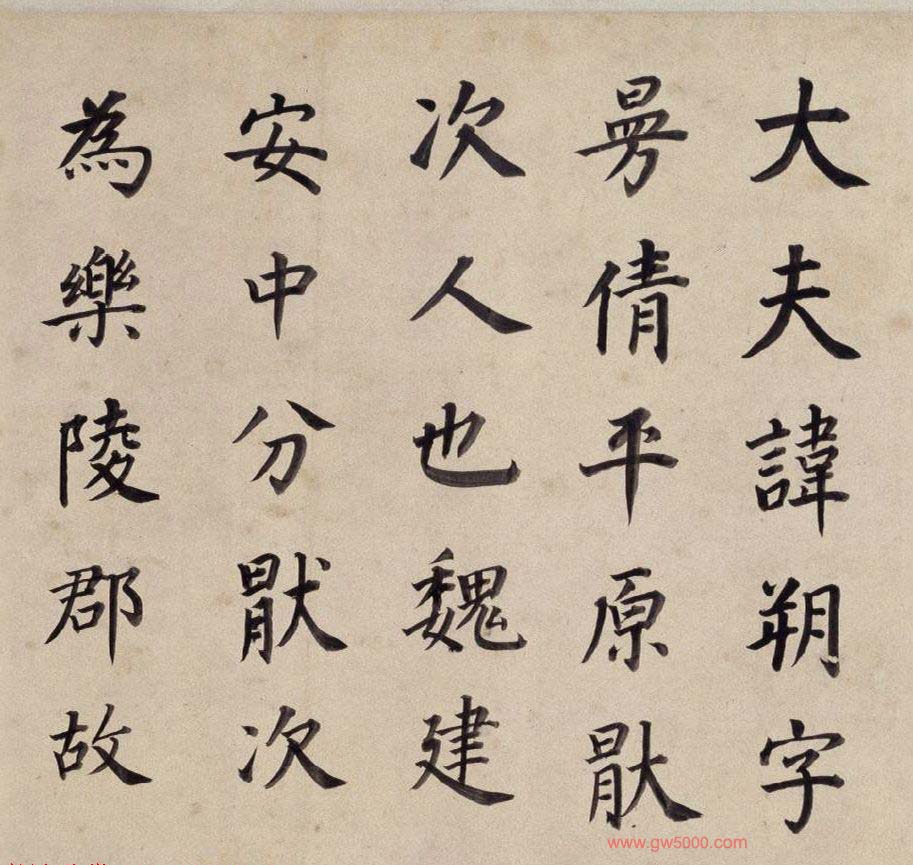 大夫諱朔字
曼倩平原猒
次人也魏建
安中分猒次
為樂陵郡故
www.gw5000.com